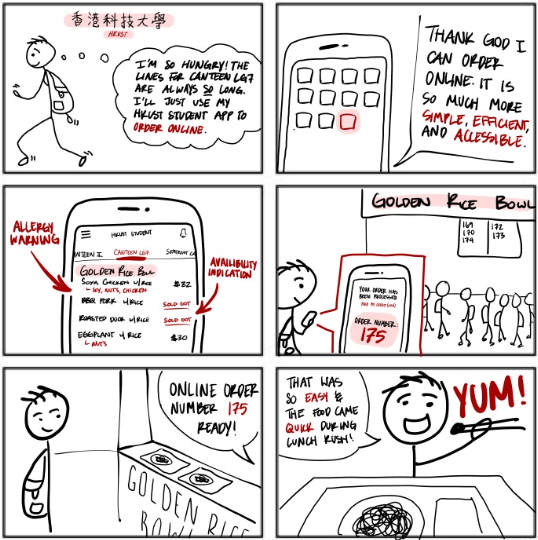 香港科技大學
HKUST
I'M SO HUNGRY! THE
LINES FOR CANTEEN LG7
ARE ALWAYS SO LONG.
I'LL JUST USE MY
HKUST STUDENT APP TO
ORDER ONLINE.
THANK GOD I
CAN ORDER
ONLINE. IT IS
SO MUCH MORE
SIMPLE, EFFICIENT,
AND ACCESSIBLE.
ALLERGY
WARNING
HKUST STUDENT
CANTEEN LG7
GOLDEN RICE BOWL
SOYA CHICKEN W/ RICE $32
SOY, NUTS, CHICKEN
BBQ PORK W/ RICE SOLD OUT
ROASTED DUCK W/ RICE SOLD OUT
EGGPLANT W/ RICE $30
NUTS
AVAILIBILITY
INDICATION
GOLDEN RICE BOWL
169 172
170 173
174
YOUR ORDER HAS
BEEN PROCESSED
ORDER NUMBER:
175
ONLINE ORDER
NUMBER 175
READY!
GOLDEN RICE
BOWL
THAT WAS
SO EASY &
THE FOOD CAME
QUICK DURING
LUNCH RUSH!
YUM!